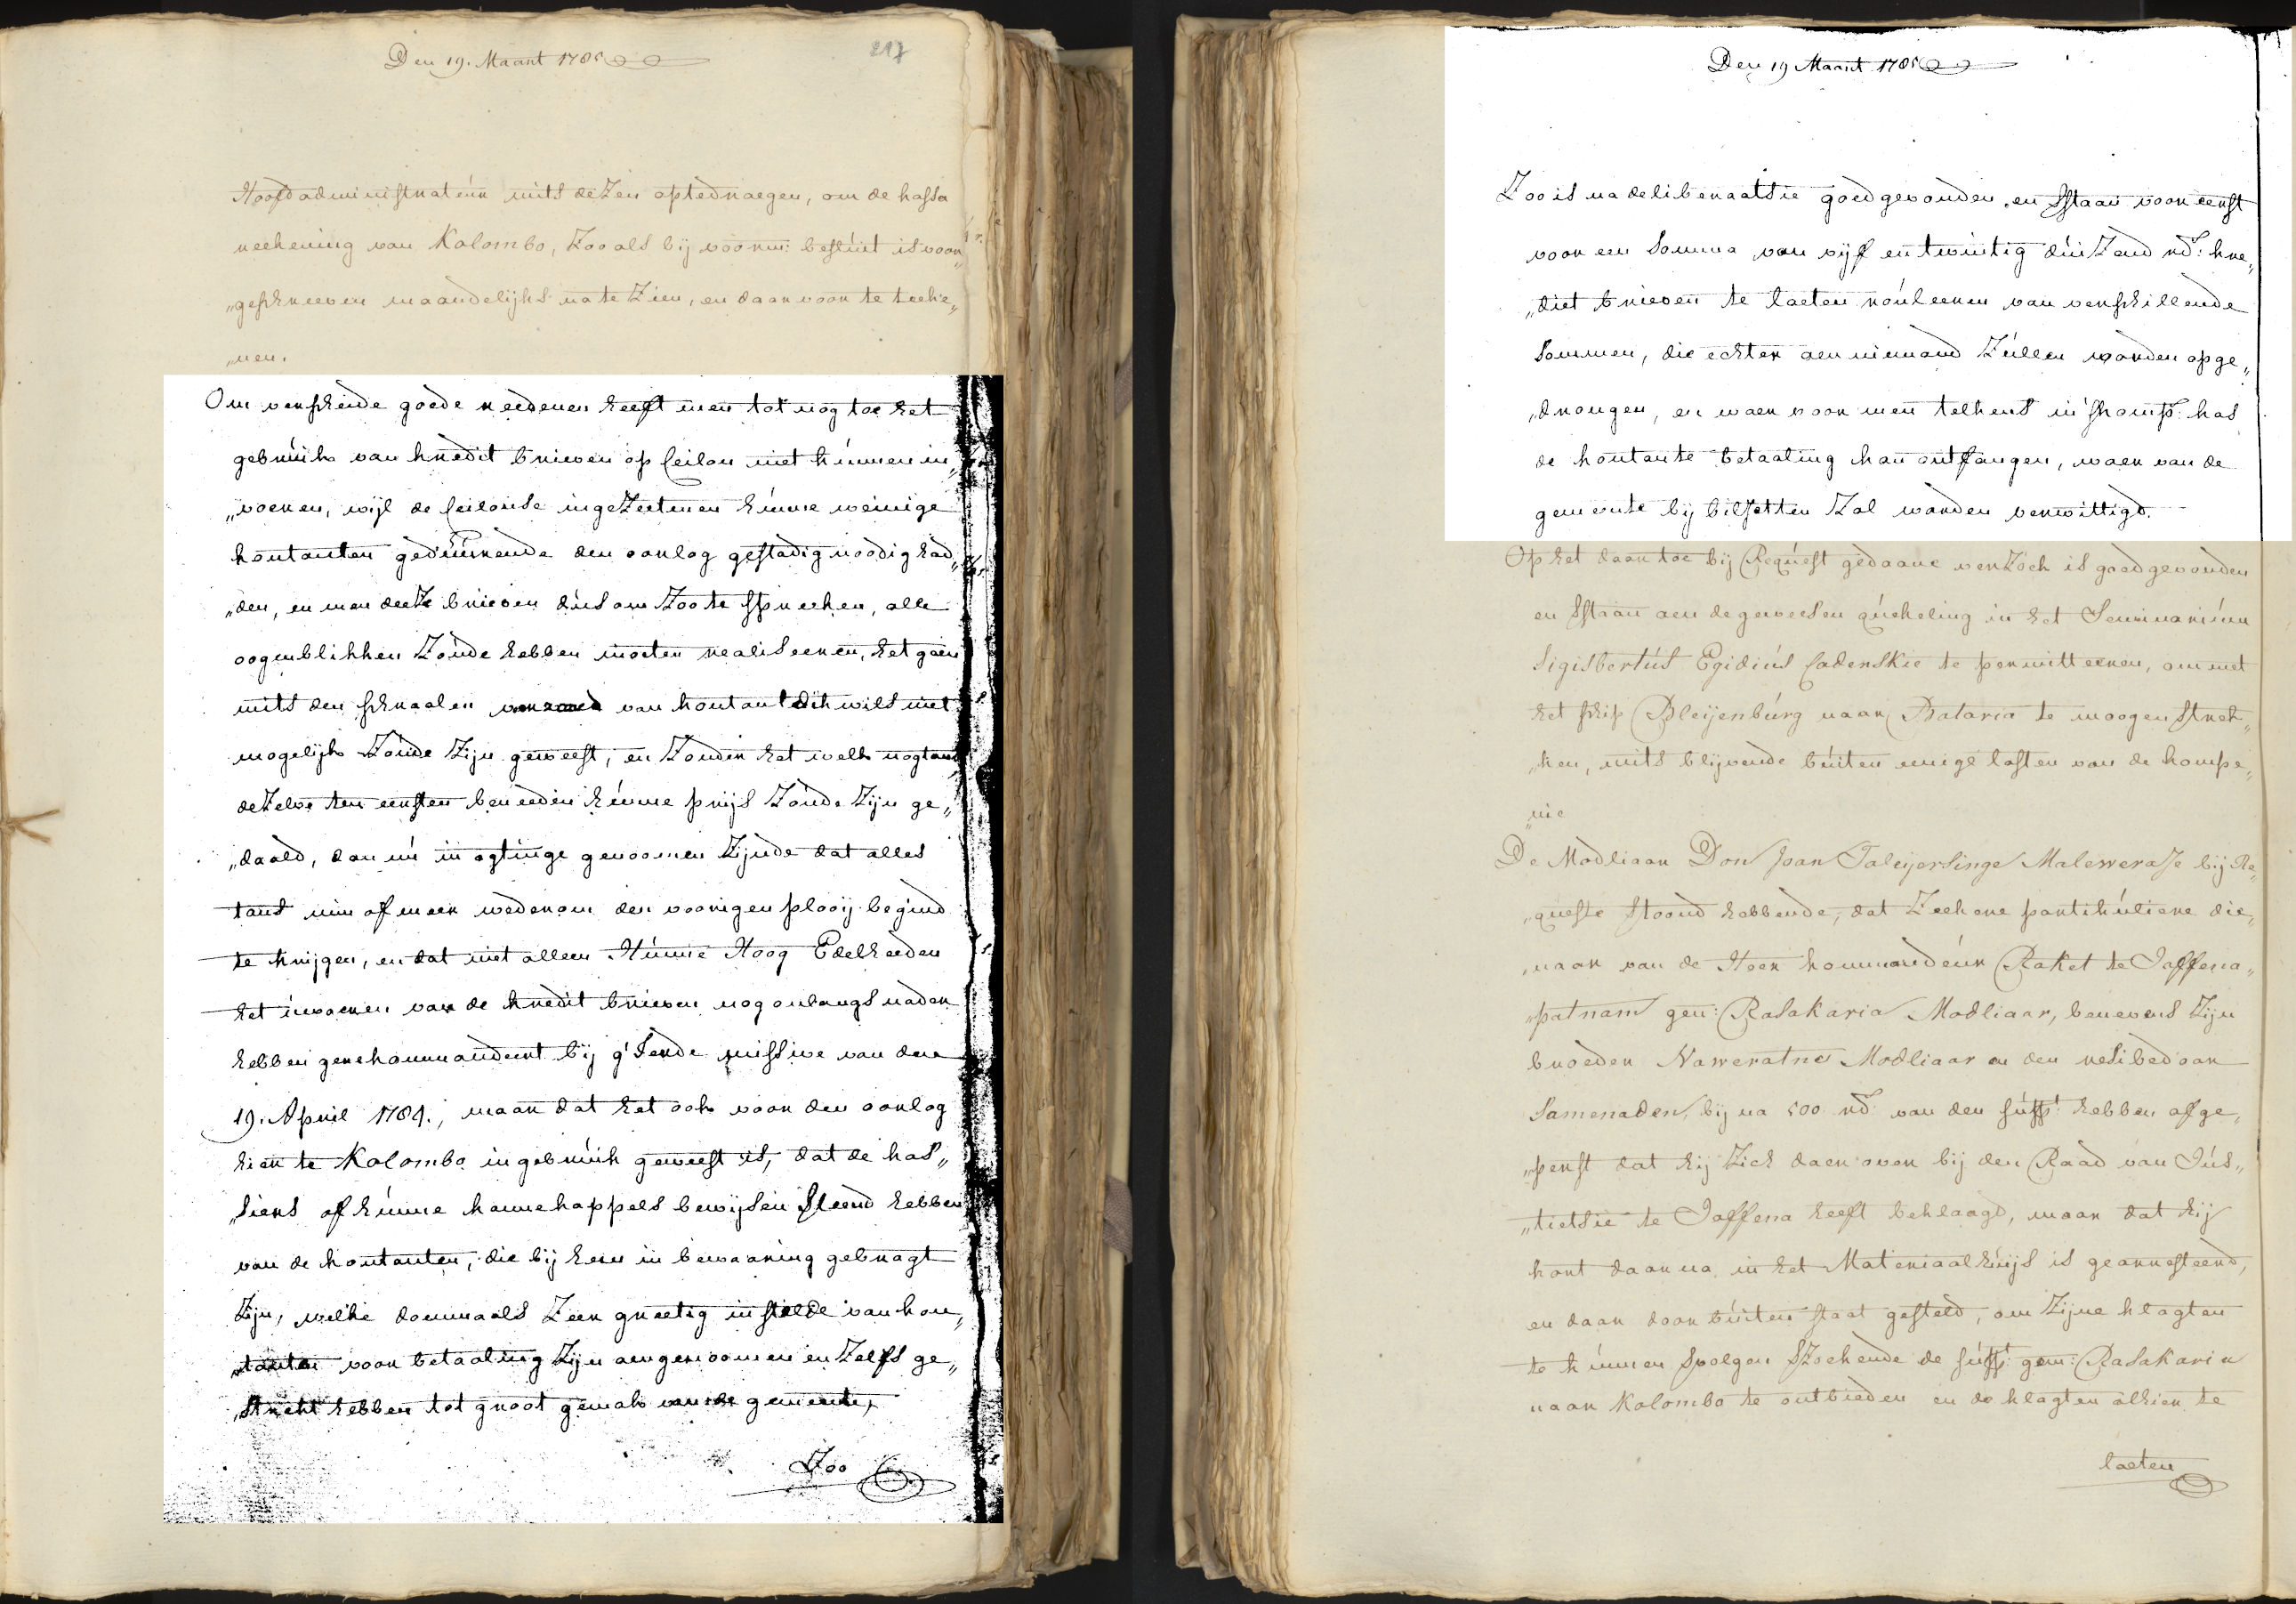 Den 19. Maart 1785
217
Hoofdadministrateur mits dezen optedraegen, om de kassa
reekening van Kolombo, Zoo als bij voorm: besluit is voor„
„geschreeven maandelijks nate Zien, en daar voor te teeke„
„nen.
Om verscheide goede reedenen heeft men tot nog toe het
gebruik van kredit brieven op Ceilon niet kunnen in„
„voeren, wijl de Ceilonse ingezeetenen hunne weinige
kontanten geduurende den oorlog gestadig noodig had„
„den, en men deeze brieven dus om Zoo te spreeken, alle
oogenblikken Zoude hebben moeten realiseeren, het gaen
mits den schraalen voorraad van kontant dikwils niet
mogelijk Zoude Zijn geweest, en Zouden het welk nogtans
dezelve ten eersten beneeden hunne prijs Zoude Zijn ge„
„daald, dan nu in agtinge genoomen Zijnde dat alles
tans min of meer wederom den voorigen plooij begind
te krijgen, en dat niet alleen Hunne Hoog Edelheeden
het invoeren van de kredit brieven nog onlangs nader
hebben gerekommandeert bij g'eerde missive van den
19. April 1784., maar dat het ook voor den oorlog
hier te Kolombo in gebruik geweest is, dat de kas„
„siers of hunne kannekappels bewijsen Sleend hebben
van de kontanten, die bij hem in bewaaring gebragt
Zijn, welke doenmaals Zeer greetig in stede van kon„
„tanten voor betaaling Zijn aengenoomen en Zelfs ge„
„strekt hebben tot groot gemak van de gemeente,
Zoo
Den 19 Maart 1785
Zoo is na deliberaatsie goedgevonden en Sstaan voor eerst
voor een Somma van vijf en twintig duizend rd:s kre„
„diet brieven te laeten rouleeren van verschillende
Sommen, die echter aen niemand Zullen worden opge„
„drongen, en waer voor men telkens in 'skomp:s kas
de kontante betaaling kan ontfangen, waer van de
gemeente bij biljetten Zal worden verwittigd.
Op het daar toe bij Request gedaane verzoek is goedgevonden
en Sstaan aen de geweesen queekeling in het Seminarium
Sigisbertus Egidius Caderskie te permitteeren, om met
het schip Bleijenburg naar Batavia te moogen strek„
„ken, mits blijvende buiten eenige lasten van de kompe„
„nie
De Modliaar Don Joan Taleijersinge Malewerase bij Re„
„queste Stoond hebbende, dat Zeekere partikuliere die„
„naar van de Heer kommandeur Raket te Jaffena„
„patnam gen: Rasakaria Modliaar, benevens Zijn
broeder Naweratne Modliaar en den resibedoor
Samenaden, bij na 500 rd:s van den supp:t hebben afge„
„perst dat hij Zich daer over bij den Raad van Jus„
„tietsie te Jaffena heeft beklaagd, maar dat hij
kort daar na in het Materiaalhuijs is gearresteerd,
en daar door buiten staat gesteld, om Zijne klagten
te kunnen Svolgen Szoekende de supp:t gem: Rasakaria
naar Kolombo te ontbieden en de klagten alhier te
laeten